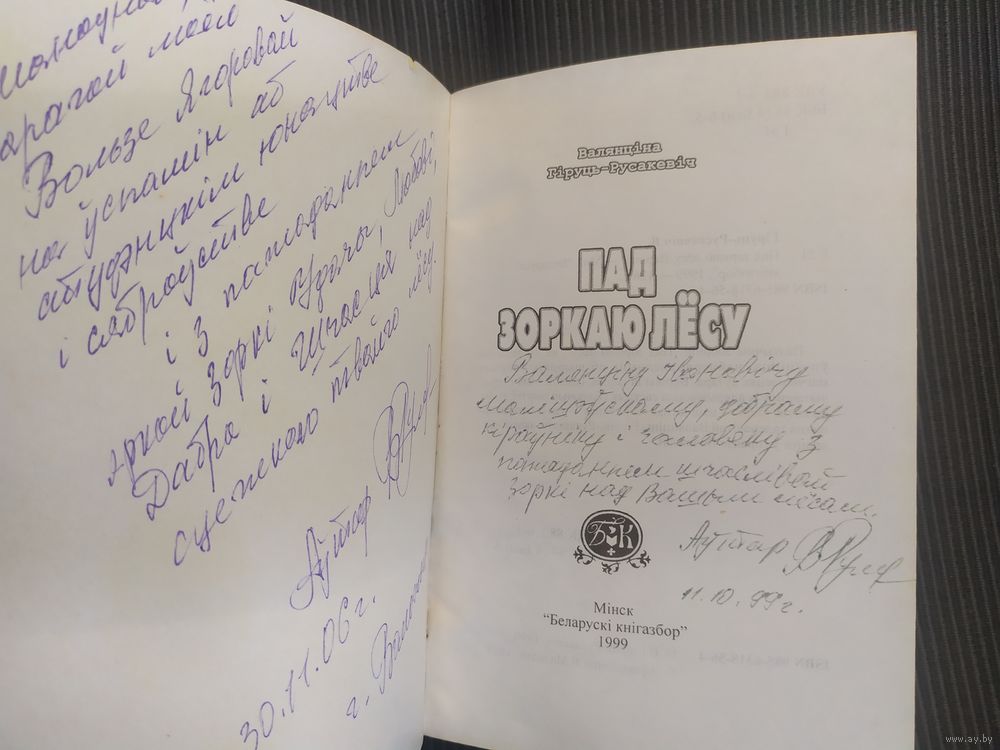 дарагой маёй
Вользе Ягоравай
на ўспамін аб
студэнцкім юнацтве
і сяброўстве
і з пажаданнем
яркай зоркі Удачы, Любві,
Дабра і Шчасця над
сцежкаю твайго лёсу.
Аўтар
30.11.06 г.
г.
Валянціна
Гіруць-Русакевіч
ПАД
ЗОРКАЮ ЛЁСУ
Валянціну Іванавічу
добраму
кіраўніку і чалавеку з
пажаданнем шчаслівай
зоркі над Вашым лёсам.
Аўтар
11.10.99 г.
БК
Мінск
"Беларускі кнігазбор"
1999
www.ay.by